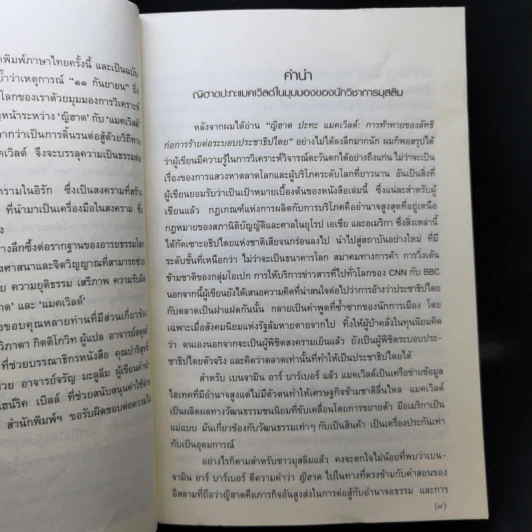 าพิมพ์ภาษาไทยครั้งนี้ และเป็นฉบับ
ย้ำว่าเหตุการณ์ “๑๑ กันยายน” ยิ่ง
โลกของเราด้วยมุมมองการวิเคราะห์
หน้าระหว่าง ‘ญิฮาด’ กับ ‘แมคเวิลด์’
ากกว่าเป็นการดิ้นรนต่อสู้ด้วยวิถีทาง
เวิลด์ จึงจะบรรลุความเป็นธรรมต่อ
ครามในอิรัก ซึ่งเป็นสงครามที่สร้าง
ที่นำมาเป็นเครื่องมือในสงคราม ซึ่ง
างลึกซึ้งต่อรากฐานของอารยธรรมโลก
งศาสนาและจิตวิญญาณที่สามารถช่วย
ความยุติธรรม เสรีภาพ ความรับผิด
าด’ และ ‘แมคเวิลด์’
อขอบคุณหลายท่านที่มีส่วนเกี่ยวข้อง
วิภาดา กิตติโกวิท ผู้แปล อาจารย์
ที่ช่วยบรรณาธิกรหนังสือ คุณ
วย อาจารย์จรัญ มะลูลีม ผู้เขียนคำนำ
ไฮน์ริค เบิลล์ ที่ช่วยสนับสนุนค่าใช้จ่าย
สำนักพิมพ์ฯ ขอรับผิดชอบต่อความ
คำนำ
ญิฮาดปะทะแมคเวิลด์ในมุมมองของนักวิชาการมุสลิม
หลังจากผมได้อ่าน “ญิฮาด ปะทะ แมคเวิลด์: การท้าทายของลัทธิ
ก่อการร้ายต่อระบอบประชาธิปไตย” อย่างไม่ได้ลงลึกมากนัก ผมก็พอสรุปได้
ว่าผู้เขียนมีความรู้ในการวิเคราะห์วิจารณ์ตะวันตกได้อย่างถึงแก่น ไม่ว่าจะเป็น
เรื่องของการแสวงหาตลาดโลกและผู้บริโภคระดับโลกที่ยาวนาน อันเป็นสิ่งที่
ผู้เขียนยอมรับว่าเป็นเป้าหมายเบื้องต้นของหนังสือเล่มนี้ ซึ่งแน่ละสำหรับผู้
เขียนแล้ว กฎเกณฑ์แห่งการผลิตกับการบริโภคมีอำนาจสูงสุดที่อยู่เหนือ
กฎหมายของสภานิติบัญญัติและศาลในยุโรป เอเชีย และอเมริกา ซึ่งสิ่งเหล่านี้
ได้กัดเซาะอธิปไตยแห่งชาติเสียจนกร่อนลงไป นำไปสู่สถาบันอย่างใหม่ ที่มี
ระดับชั้นที่เหนือกว่า ไม่ว่าจะเป็นธนาคารโลก สมาคมทางการค้า การวิ่งเต้น
ข้ามชาติของกลุ่มโอเปก การให้บริการข่าวสารที่ไปทั่วโลกของ CNN กับ BBC
นอกจากนี้ผู้เขียนยังได้เสนอความคิดที่น่าสนใจต่อไปว่าการอ้างว่าประชาธิปไตย
กับตลาดเป็นฝาแฝดกันนั้น กลายเป็นคำพูดที่ซ้ำซากของนักการเมือง โดย
เฉพาะเมื่อสังคมนิยมแห่งรัฐล้มหายตายจากไป ทิ้งให้ผู้บ้าคลั่งในทุนนิยมคิด
ว่า ตนเองนอกจากจะเป็นผู้พิชิตสงครามเย็นแล้ว ยังเป็นผู้พิชิตระบอบประชา-
ธิปไตยตัวจริง และคิดว่าตลาดเท่านั้นที่ทำให้เป็นประชาธิปไตยได้
สำหรับ เบนจามิน อาร์ บาร์เบอร์ แล้ว แมคเวิลด์เป็นเครือข่ายข้อมูล
ไฮเทคที่มีอำนาจสูงแต่ไม่มีตัวตนทำให้เศรษฐกิจข้ามชาติลื่นไหล แมคเวิลด์
เป็นผลิตผลทางวัฒนธรรมชนนิยมที่ขับเคลื่อนโดยการขยายตัว มีอเมริกาเป็น
แม่แบบ มันเกี่ยวข้องกับวัฒนธรรมเท่าๆ กับเป็นสินค้า เป็นเครื่องประกันเท่า
กับเป็นอุดมการณ์
อย่างไรก็ตามสำหรับชาวมุสลิมแล้ว คงจะตกใจไม่น้อยที่พบว่าเบน-
จามิน อาร์ บาร์เบอร์ ตีความคำว่า ญิฮาด ไปในทางที่ตรงข้ามกับคำสอนของ
อิสลามที่ถือว่าญิฮาดคือภารกิจอันสูงส่งในการต่อสู้กับอำนาจอธรรม และการ
(๗)